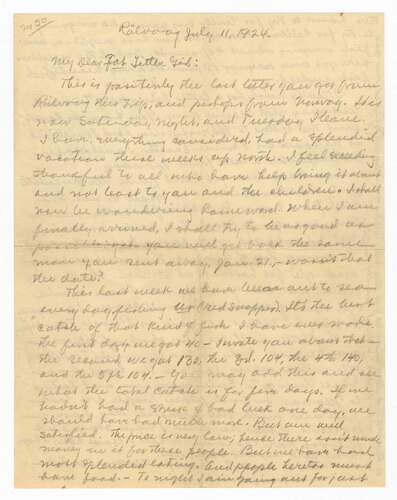 m 50
Rölvaag July 11, 1924.
My Dear Fat Sitter Girl:
This is positively the last letter you get from
Rölvaag this trip, and perhaps from Norway. It is
now Saturday night, and Tuesday I leave.
I have, everything considered, had a splendid
vacation these weeks up North. I feel exceeding
thankful to all who have help bring it about
and not least to you and the children. I shall
now be wandering homeward. When I am
finally arrived, I shall try to be as good as
you will get back the same
man you sent away, Jan. 21, - wasn't that
the date?
This last week we have been out to sea
every day, fishing (red snapper). It's the best
catch of that kind of fish I have ever made.
The first day we got 40 - I wrote you about that -
the second we got 130, the 3rd. 104, the 4th 140,
and the 5th 104. - You may add this and see
what the total catch is for five days. If we
hadn't had a bad luck one day, we
should have had much more. But am well
satisfied. The price is very low, hence there isn't much
money in it for these people. But we have had
most splendid eating. And people here too must
have food. - To night I am going out for, last